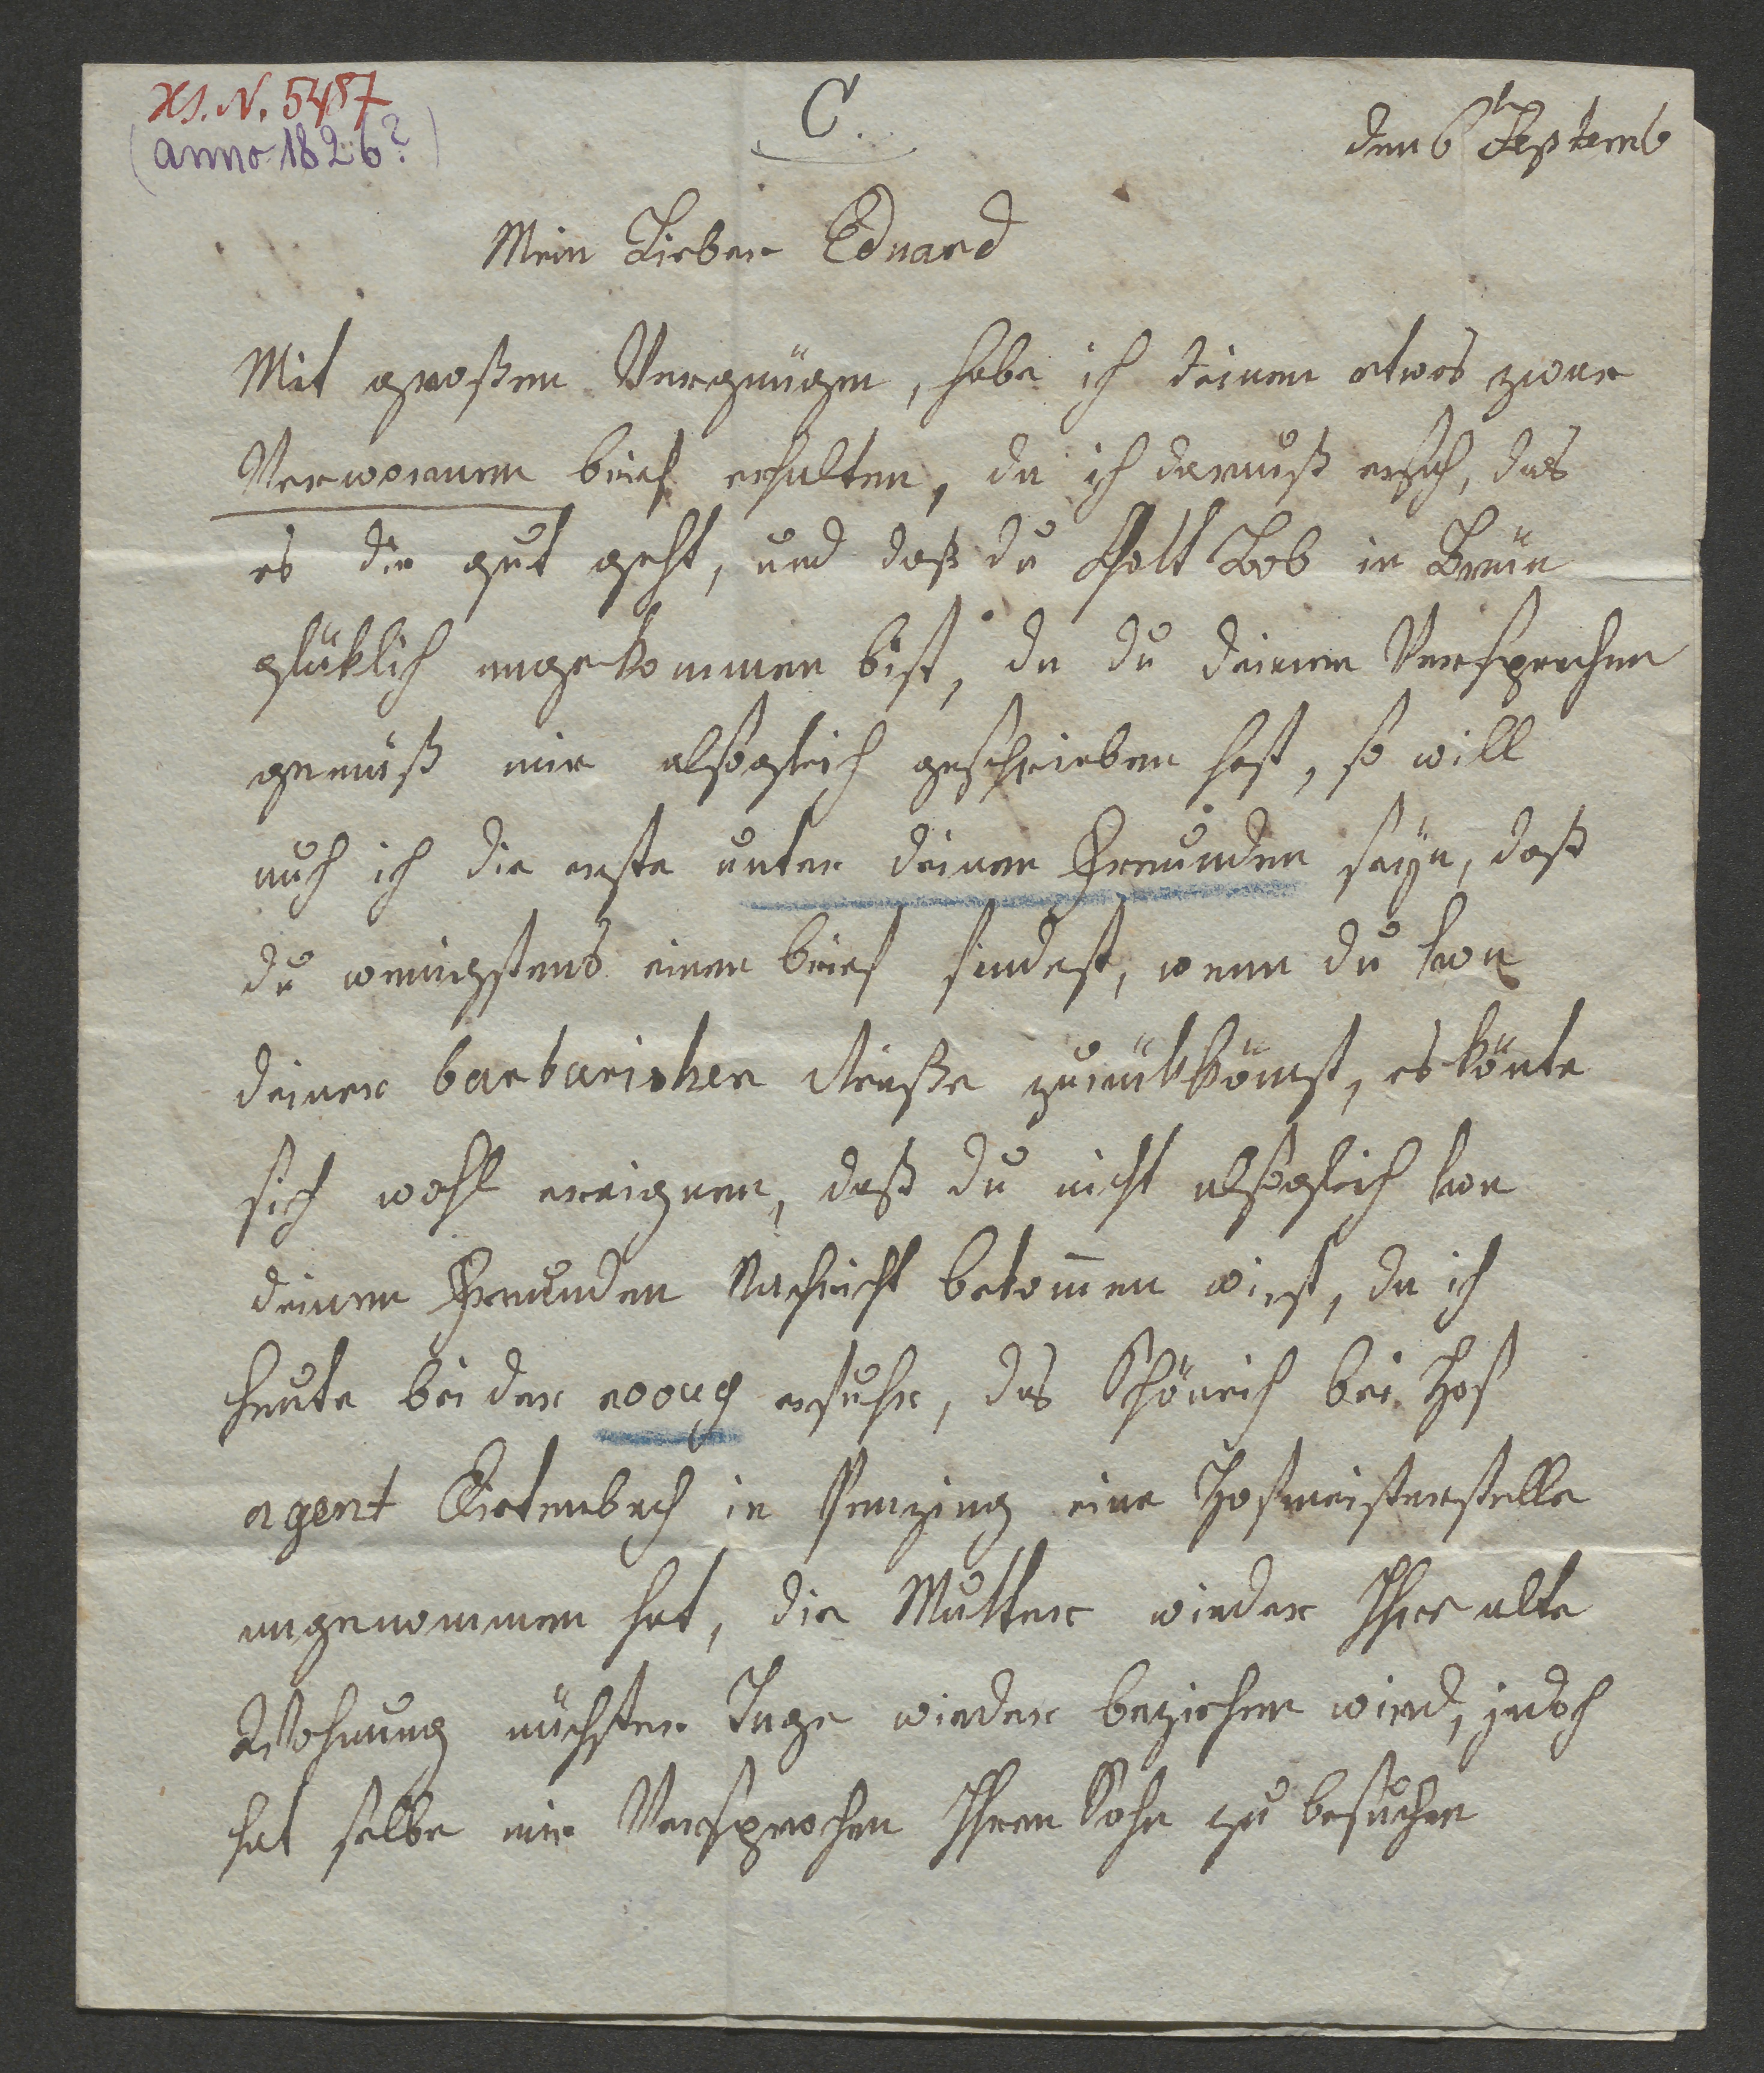 XS. N. 5487
(anno 1826?)
C.
den 6t Septemb
Mein Lieber Eduard
Mit großen Vergnügen, habe ich deinen etwas zwar
Verworrnen brief erhalten, da ich darauß ersah, das
es dir gut geht, und daß du Gott Lob in Brün
glüklich angekommen bist, da du deinem Versprechen
gemäß mir alsogleich geschrieben hast, so will
auch ich die erste unter deinen Freunden seÿn, daß
du wenigstens einen brief findest, wenn du von
deiner barbarischen Reiße zurükkömst, es könte
sich wohl ereignen, daß du nicht alsogleich von
deinen Freunden Nachricht bekom̄en wirst, da ich
heute bei der erfuhr, das Schönreich bei Hof
agent in Penzing eine Hofmeisterstelle
angenommen hat, die Mutter wieder Ihre alte
Wohnung nächster Tage wieder beziehen wird, jedoch
hat selbe mir Versprochen Ihren Sohn zu besuchen